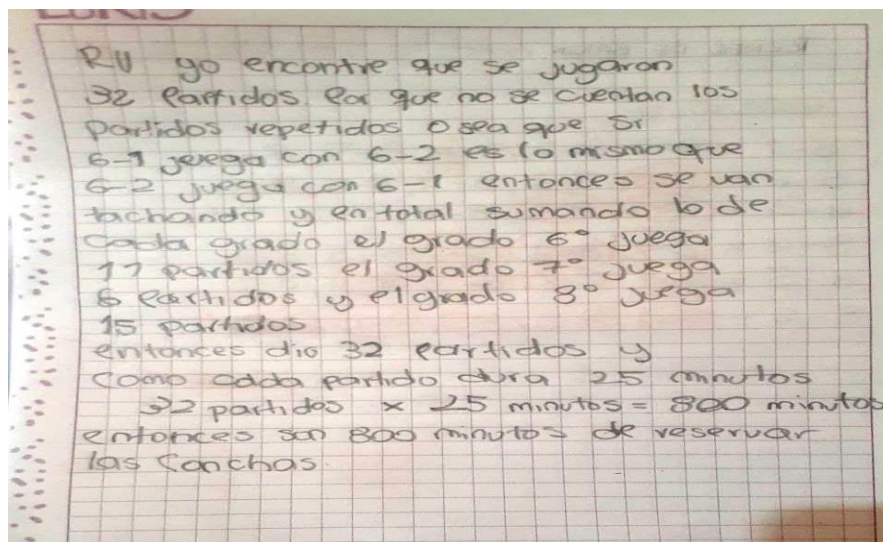 RU yo encontre que se jugaron
32 Partidos Por que no se cuentan los
partidos repetidos o sea que Si
6-1 juega con 6-2 es lo mismo que
6-2 juega con 6-1 entonces se van
tachando y en total sumando lo de
cada grado el grado 6° juega
11 partidos el grado 7° juega
6 partidos y el grado 8° juega
15 partidos
entonces dio 32 partidos y
como cada partido dura 25 minutos
32 partidos x 25 minutos = 800 minutos
entonces son 800 minutos de reservar
las canchas.